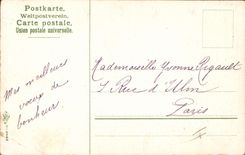 Postkarte.
Weltpostverein.
Carte postale.
Union postale universelle.
Mes meilleurs
voeux de
bonheur.
Mademoiselle Yvonne Rigault
5 Rue d'Ulm
Paris